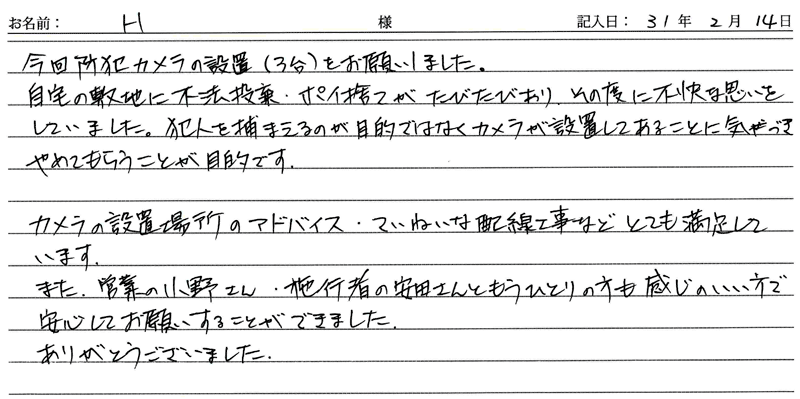 お名前： H 様 記入日： 31年 2月 14日
今回防犯カメラの設置（3台）をお願いしました。
自宅の敷地に不法投棄・ポイ捨てがたびたびあり、その度に不快な思いを
していました。犯人を捕まえるのが目的ではなくカメラが設置してあることに気づき
やめてもらうことが目的です。
カメラの設置場所のアドバイス・ていねいな配線工事などとても満足して
います。
また、営業の小野さん・施行者の安田さんともうひとりの方も感じのいい方で
安心してお願いすることができました。
ありがとうございました。